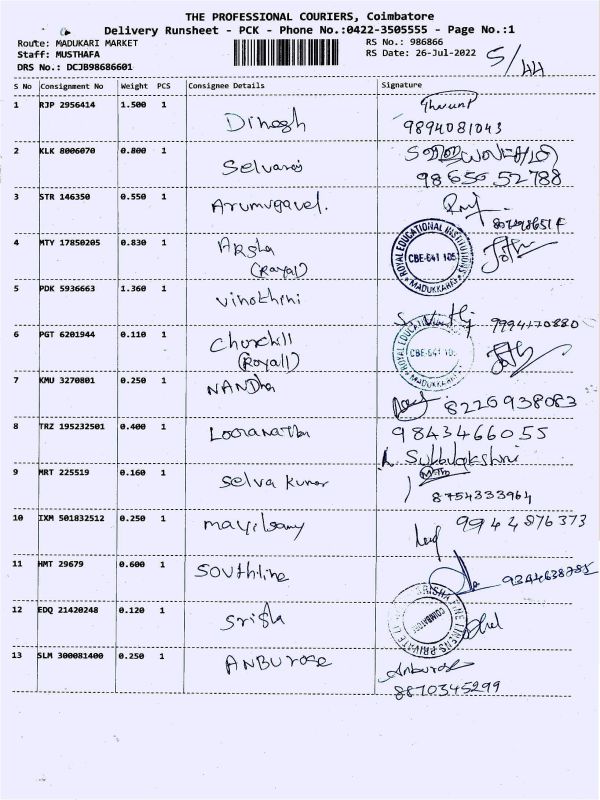 THE PROFESSIONAL COURIERS, Coimbatore
Delivery Runsheet - PCK - Phone No.:0422-3505555 - Page No.:1
Route: MADUKARI MARKET
Staff: MUSTHAFA
DRS No.: DCJB98686601
RS No.: 986866
RS Date: 26-Jul-2022
5/44
S No Consignment No Weight PCS Consignee Details Signature
1 RJP 2956414 1.500 1 Dinesh
9894081043
2 KLK 8006070 0.800 1 Selvaraj
98656 52788
3 STR 146350 0.550 1 Arumugavel.
4 MTY 17850205 0.830 1 Arsha
(Royal)
ROYAL EDUCATIONAL INSTITUTIONS
CBE-641 105
MADUKKARAI
5 PDK 5936663 1.360 1 Vinothini
9994170880
6 PGT 6201944 0.110 1 Churchill
(Royall)
ROYAL EDUCATIONAL INSTITUTIONS
CBE-641 105
MADUKKARAI
7 KMU 3270801 0.250 1 NANDha
8220938083
8 TRZ 195232501 0.400 1 Loganathan
9843466055
9 MRT 225519 0.160 1 Selva Kumar
8754333964
10 IXM 501832512 0.250 1 mayilsamy
9944876373
11 HMT 29679 0.600 1 Southline
9344638785
12 EDQ 21420248 0.120 1 Srisha
COIMBATORE
13 SLM 300081400 0.250 1 ANBUROSE
Anburose
8870345299